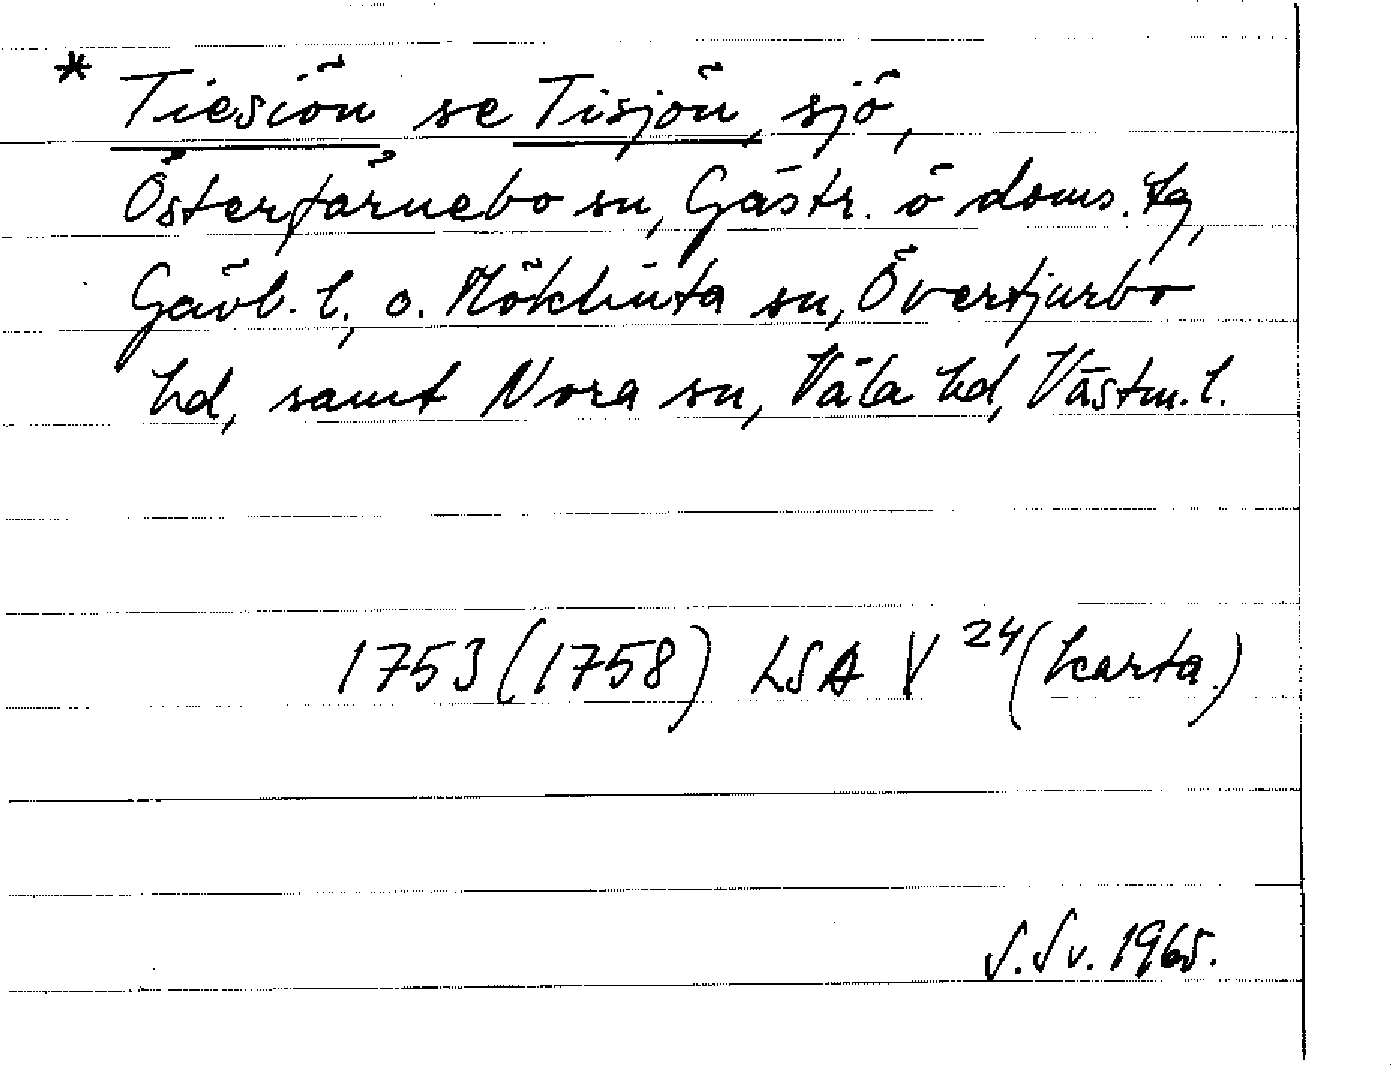 * Tiesiön se Tisjön, sjö,
Österfärnebo sn, Gästr. ö doms. tg,
Gävl. l., o. Möklinta sn, Övertjurbo
hd, samt Nora sn, Våla hd, Västm. l.
1753 (1758) LSA V 24 (karta)
S. Sv. 1965.